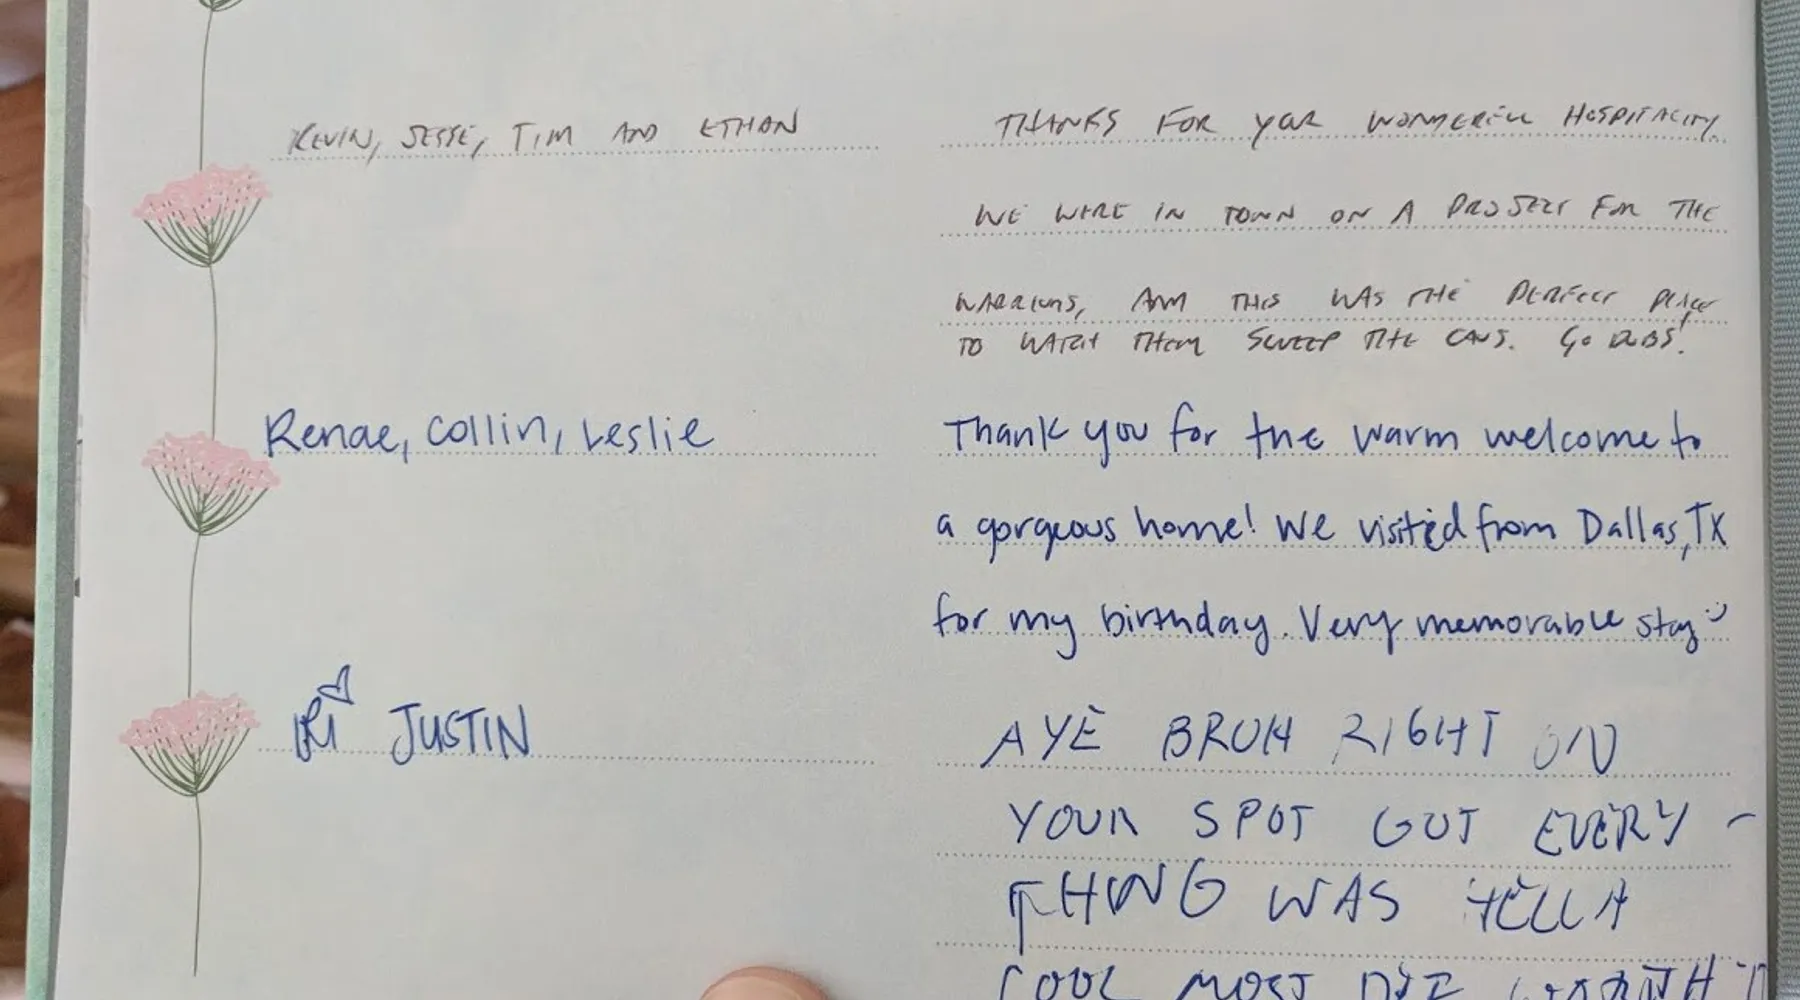 KEVIN, JESSE, TIM AND ETHAN
THANKS FOR YOUR WONDERFUL HOSPITALITY.
WE WERE IN TOWN ON A PROJECT FOR THE
WARRIORS, AND THIS WAS THE PERFECT PLACE
TO WATCH THEM SWEEP THE CAVS. GO DUBS!
Renae, Collin, Leslie
Thank you for the warm welcome to
a gorgeous home! We visited from Dallas, TX
for my birthday. Very memorable stay :)
JUSTIN
AYE BRUH RIGHT ON
YOUR SPOT GOT EVERY-
THING WAS HELLA
COOL MOST